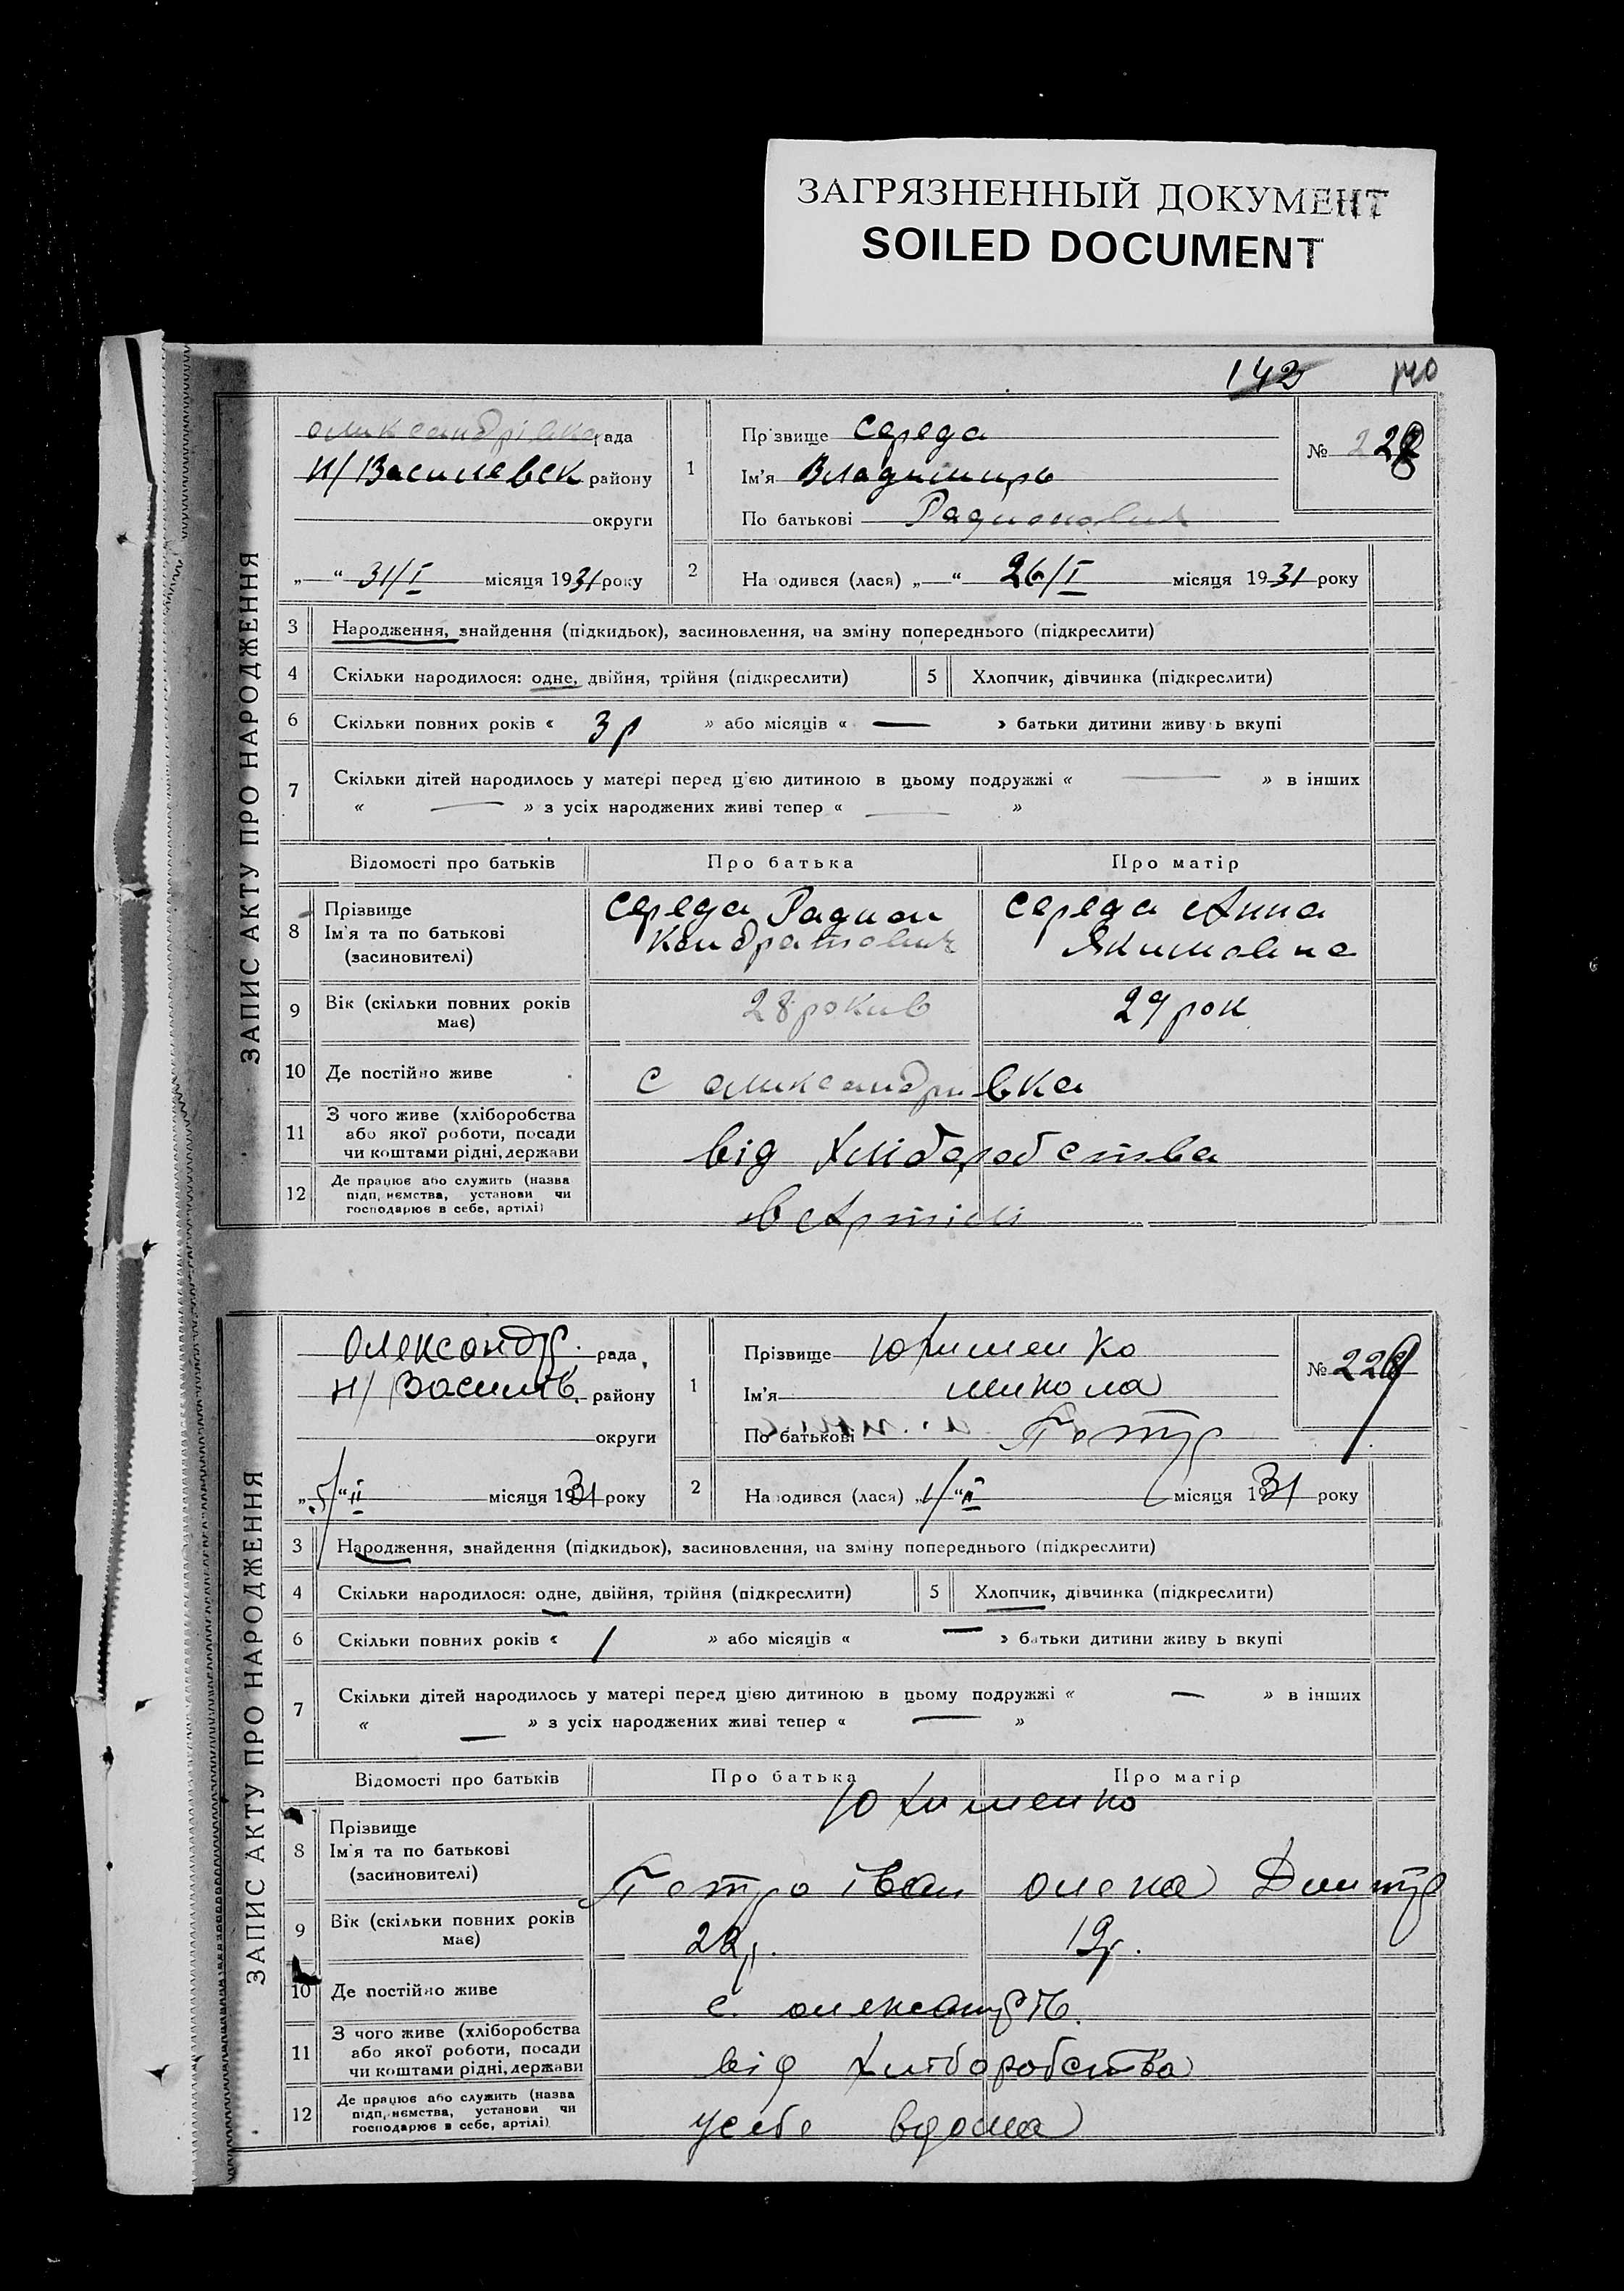 ЗАГРЯЗНЕННЫЙ ДОКУМЕНТ
SOILED DOCUMENT
142 140
ЗАПИС АКТУ ПРО НАРОДЖЕННЯ
Олександрівка рада
Н/Василевск району
округи
„—“ 31/I місяця 1931 року
1 Прізвище Середа
Ім'я Владимиръ
По батькові Радионович
№ 228
2 Народився (лася) „—“ 26/I місяця 1931 року
3 Народження, знайдення (підкидьок), засиновлення, на зміну попереднього (підкреслити)
4 Скільки народилося: одне, двійня, трійня (підкреслити) 5 Хлопчик, дівчинка (підкреслити)
6 Скільки повних років « 3 р » або місяців « — » батьки дитини живуть вкупі
7 Скільки дітей народилось у матері перед цією дитиною в цьому подружжі « — » в інших
« — » з усіх народжених живі тепер « — »
Відомості про батьків Про батька Про матір
8 Прізвище
Ім'я та по батькові
(засиновителі)
Середа Радион
Кондратович
Середа Анна
Якимовна
9 Вік (скільки повних років
має)
28 рокив 29 рок
10 Де постійно живе с Олександривка
11 З чого живе (хліборобства
або якої роботи, посади
чи коштами рідні, держави
від Хліборобства
12 Де працює або служить (назва
підприємства, установи чи
господарює в себе, артілі)
в Артілі
ЗАПИС АКТУ ПРО НАРОДЖЕННЯ
Олександр. рада
Н/Васильв. району
округи
„5“ II місяця 1931 року
1 Прізвище Юхименко
Ім'я Микола
По батькові Петр
№ 229
2 Народився (лася) „1“ II місяця 1931 року
3 Народження, знайдення (підкидьок), засиновлення, на зміну попереднього (підкреслити)
4 Скільки народилося: одне, двійня, трійня (підкреслити) 5 Хлопчик, дівчинка (підкреслити)
6 Скільки повних років « 1 » або місяців « — » батьки дитини живуть вкупі
7 Скільки дітей народилось у матері перед цією дитиною в цьому подружжі « — » в інших
« — » з усіх народжених живі тепер « — »
Відомості про батьків Про батька Про матір
Юхименко
8 Прізвище
Ім'я та по батькові
(засиновителі)
Петро Іван Олена Дмитр
9 Вік (скільки повних років
має)
22 р. 19 р.
10 Де постійно живе с.
11 З чого живе (хліборобства
або якої роботи, посади
чи коштами рідні, держави
від Хліборобства
12 Де працює або служить (назва
підприємства, установи чи
господарює в себе, артілі)
усебе вдома